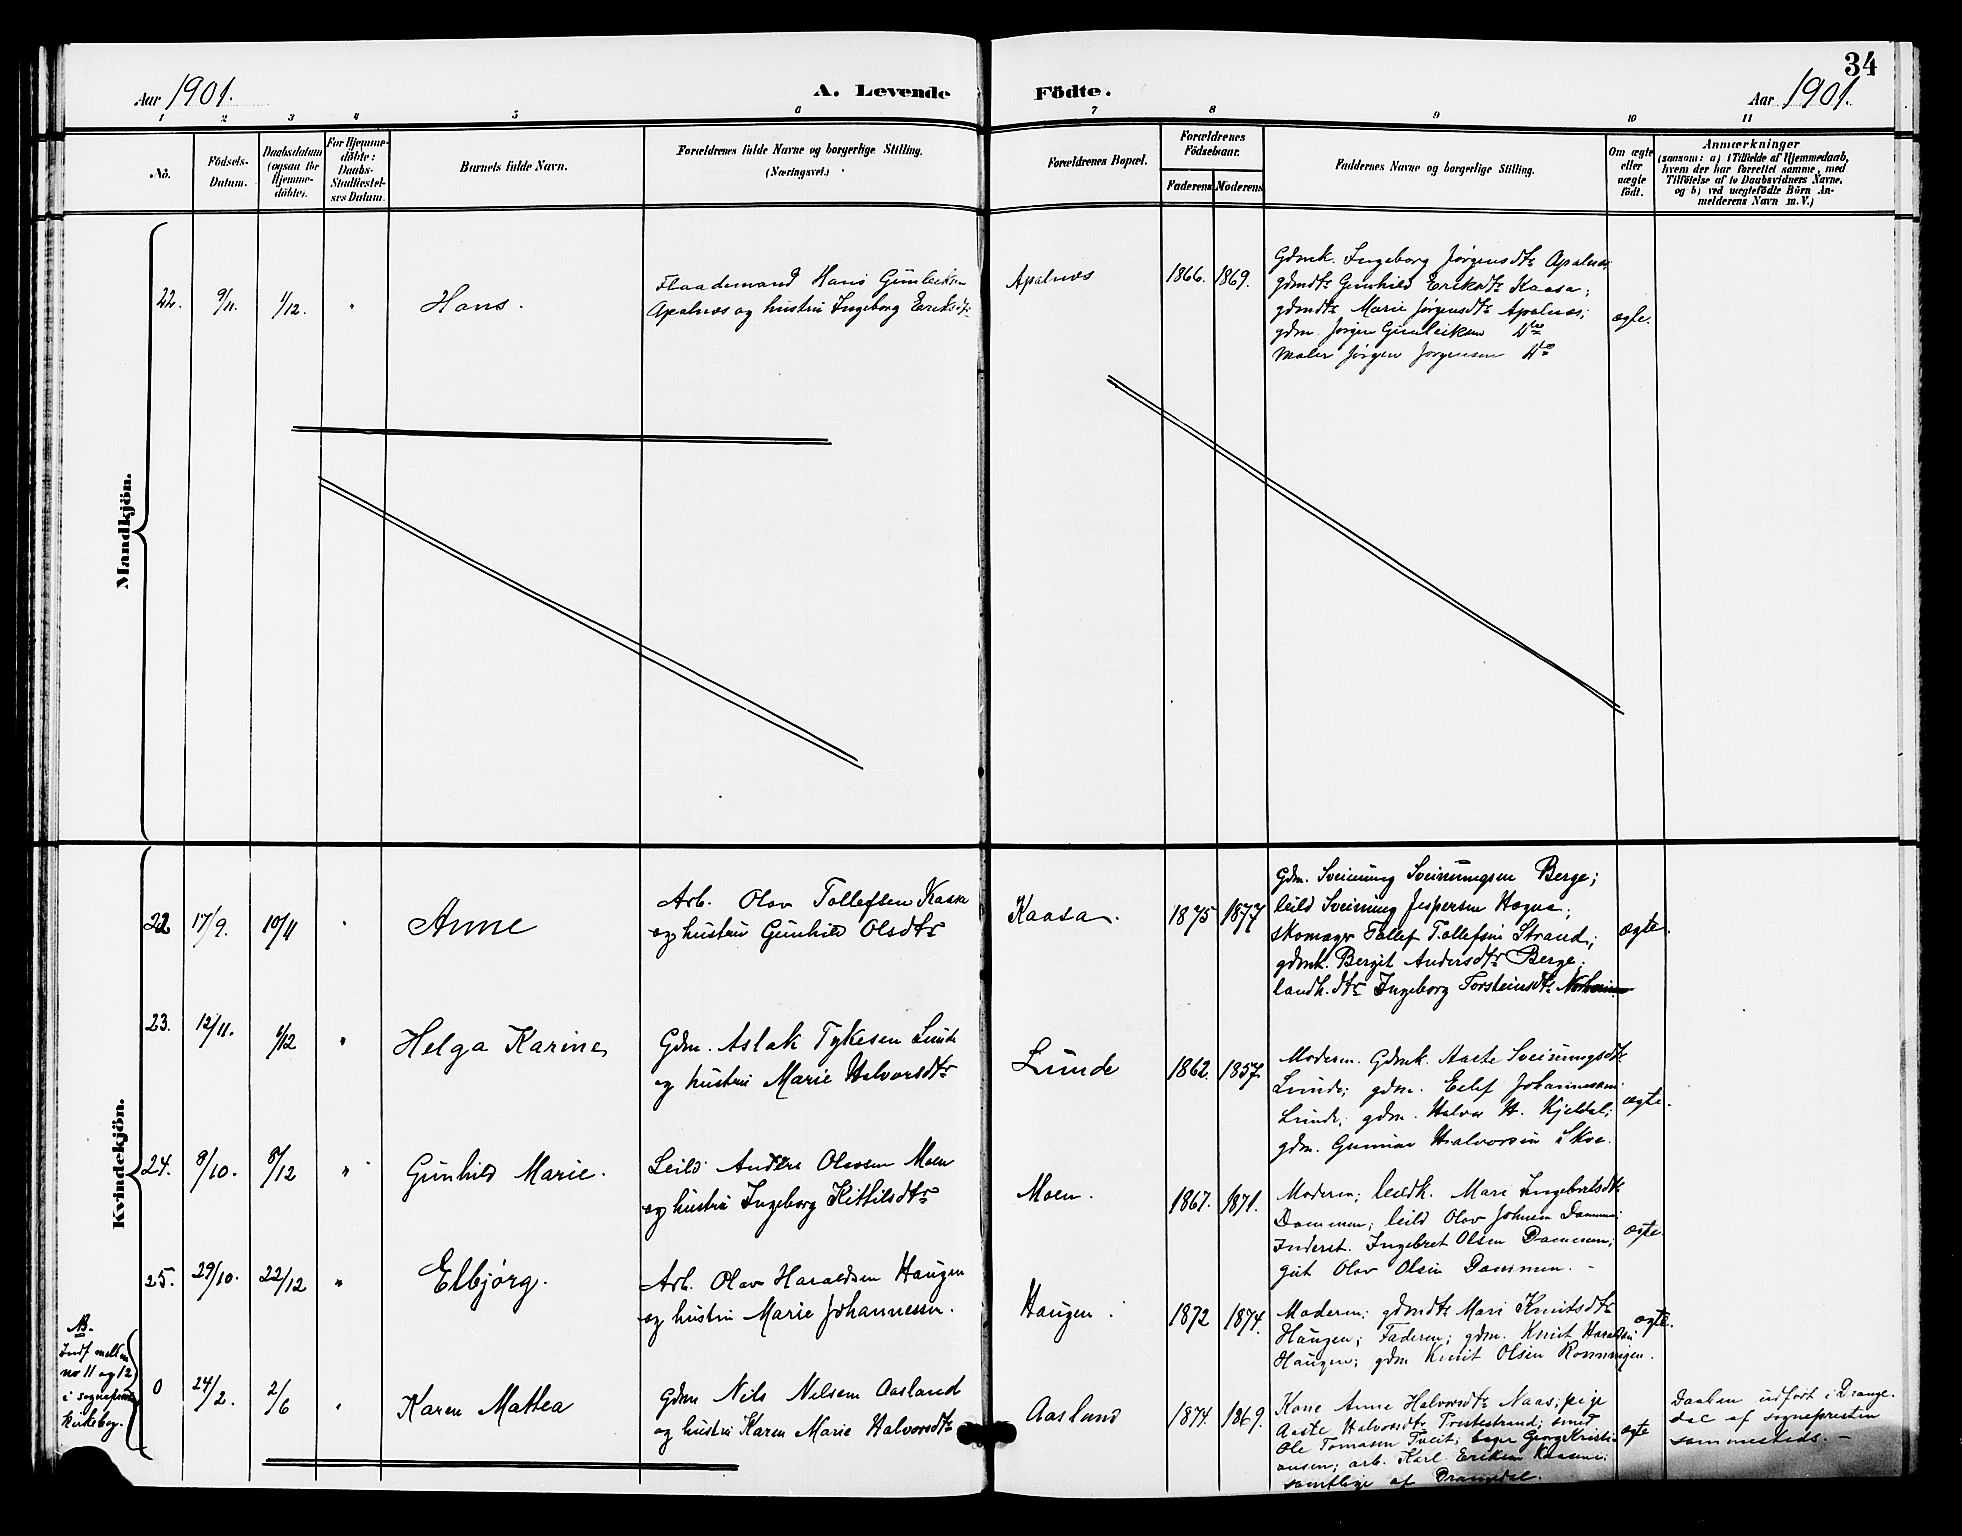 34
Aar 1901.
A. Levende Födte.
Aar 1901.
1 2 3 4 5 6 7 8 9 10 11
No.
Födsels-
Datum.
Daabsdatum
(ogsaa for
Hjemme-
döbte).
For Hjemme-
döbte:
Daabs-
Stadfæstel-
ses Datum.
Barnets fulde Navn.
Forældrenes fulde Navne og borgerlige Stilling.
(Næringsvei.)
Forældrenes Bopæl.
Forældrenes
Födselsaar.
Faderens
Moderens
Faddernes Navne og borgerlige Stilling.
Om ægte
eller
uægte
födt.
Anmærkninger
(saasom: a) i Tilfælde af Hjemmedaab,
hvem der har forrettet samme, med
Tilföielse af to Daabsvidners Navne,
og b) ved uægtefödte Börn An-
melderens Navn m. V.)
Mandkjön.
22. 9/11. 1/12. " Hans.
Hans Gunleiksen
Apalnæs og hustru Ingeborg Eriksdtr
Apalnæs
1866. 1869.
Gdmk. Ingeborg Jørgensdtr Apalnæs;
gdmdtr Gunhild Eriksdtr Kaasa;
gdmdtr Marie Jørgensdtr Apalnæs;
gdm. Jørgen Gunleiksen do
Maler Jørgen Jørgensen do
ægte.
Kvindekjön.
22 17/9. 10/11 " Anne
Arb. Olav Tollefsen Kaasa
og hustru Gunhild Olsdtr
Kaasa.
1875 1877
Gdm. Sveinung Sveinungsen Berge;
leild Sveinung Jespersen Hagaa;
skomager Tollef Tollefsen Strand;
gdmk. Bergit Andersdtr Berge;
landh. dtr Ingeborg Torsteinsdtr
ægte.
23. 12/11. 1/12 " Helga Karine
Gdm. Aslak Tykesen Lunde
og hustru Marie Halvorsdtr
Lunde
1862. 1857.
Moderen. Gdmk. Aaste Sveinungsdtr
Lunde; gdm. Eilef Johannessen
Lunde; gdm. Halvor H. Kjeldal;
gdm. Gunnar Halvorsen Skoe.
ægte.
24. 8/10. 8/12 " Gunhild Marie.
Leild. Anders Olavsen Moen
og hustru Ingeborg Kittilsdtr
Moen.
1867. 1871.
Moderen; leildk. Mari Ingebretsdtr
Dammen; leild Olav Johnsen Dammen;
Inderst. Ingebret Olsen Dammen;
gut Olav Olsen Dammen. -
ægte.
25. 29/10. 22/12 " Elbjørg.
Arb. Olav Haraldsen Haugen
og hustru Marie Johannessen.
Haugen.
1872 1874.
Moderen; gdmdtr Mari Knutsdtr
Haugen; Faderen; gdm. Knut Haraldsen
Haugen; gdm Knut Olsen Rønningen.
ægte.
NB.
Indf mellem
no 11 og 12
i sogneprest
kirkebog.
0 24/2. 2/6 " Karen Mathea
Gdm Nils Nilsen Aasland
og hustru Karen Marie Halvorsdtr
Aaslund
1874. 1869.
Kone Anne Halvorsdtr Naas; pige
Aaste Halvorsdtr Prestestrand; smed
Ole Tomasen Tveit; bager Georg Kristi-
ansen; arb. Karl Eriksen
samtlige af Drangedal.
ægte
Daaben udført i Drange-
dal af sognepresten
sammesteds. -